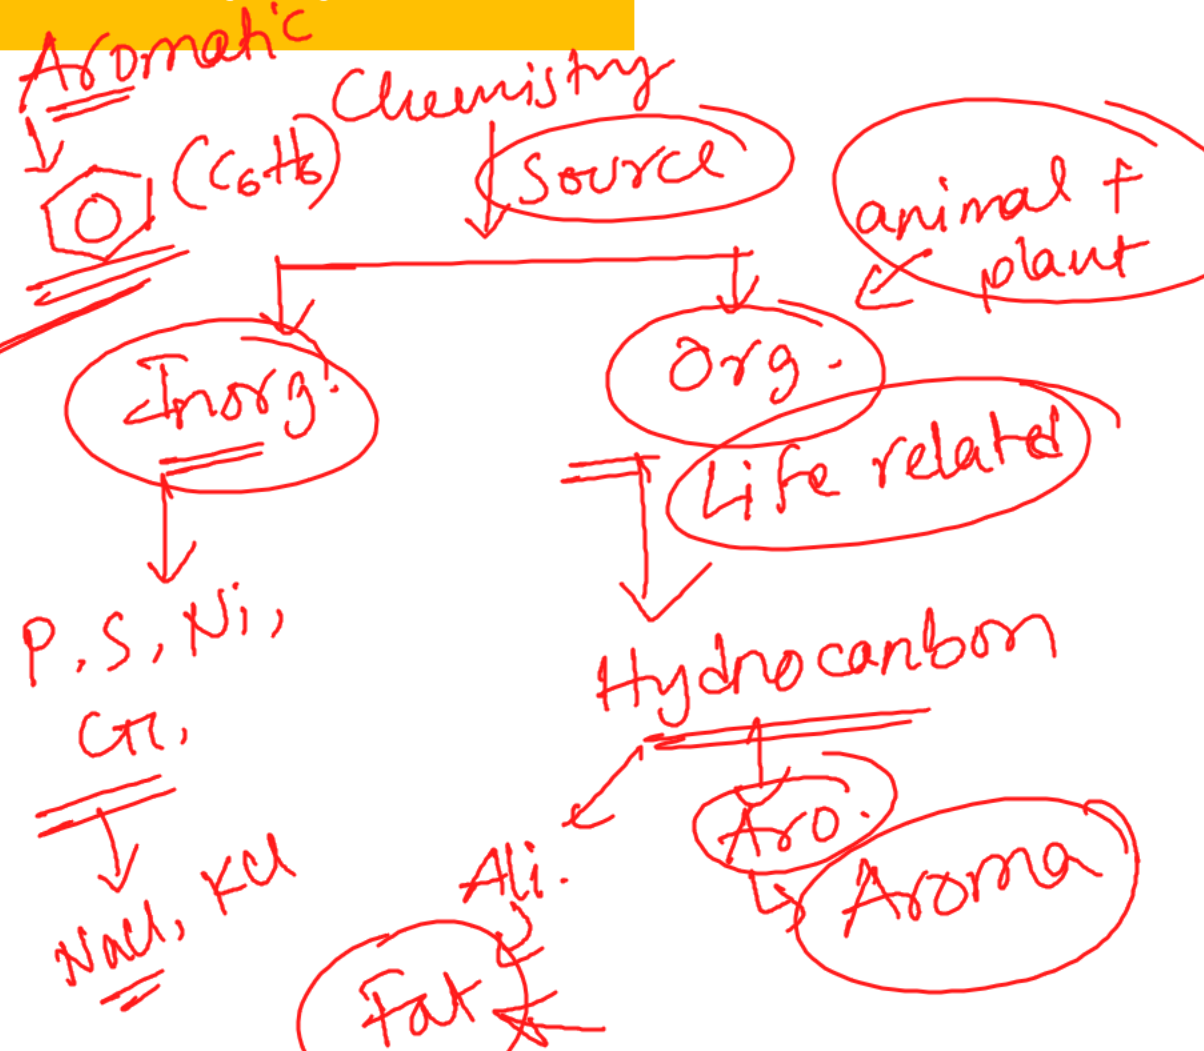 Aromatic
(C6H6)
Chemistry
Source
animal +
plant
Inorg.
Org.
Life related
P, S, Ni,
Hydrocarbon
Ali.
Aro.
Aroma
NaCl, KCl
Fat